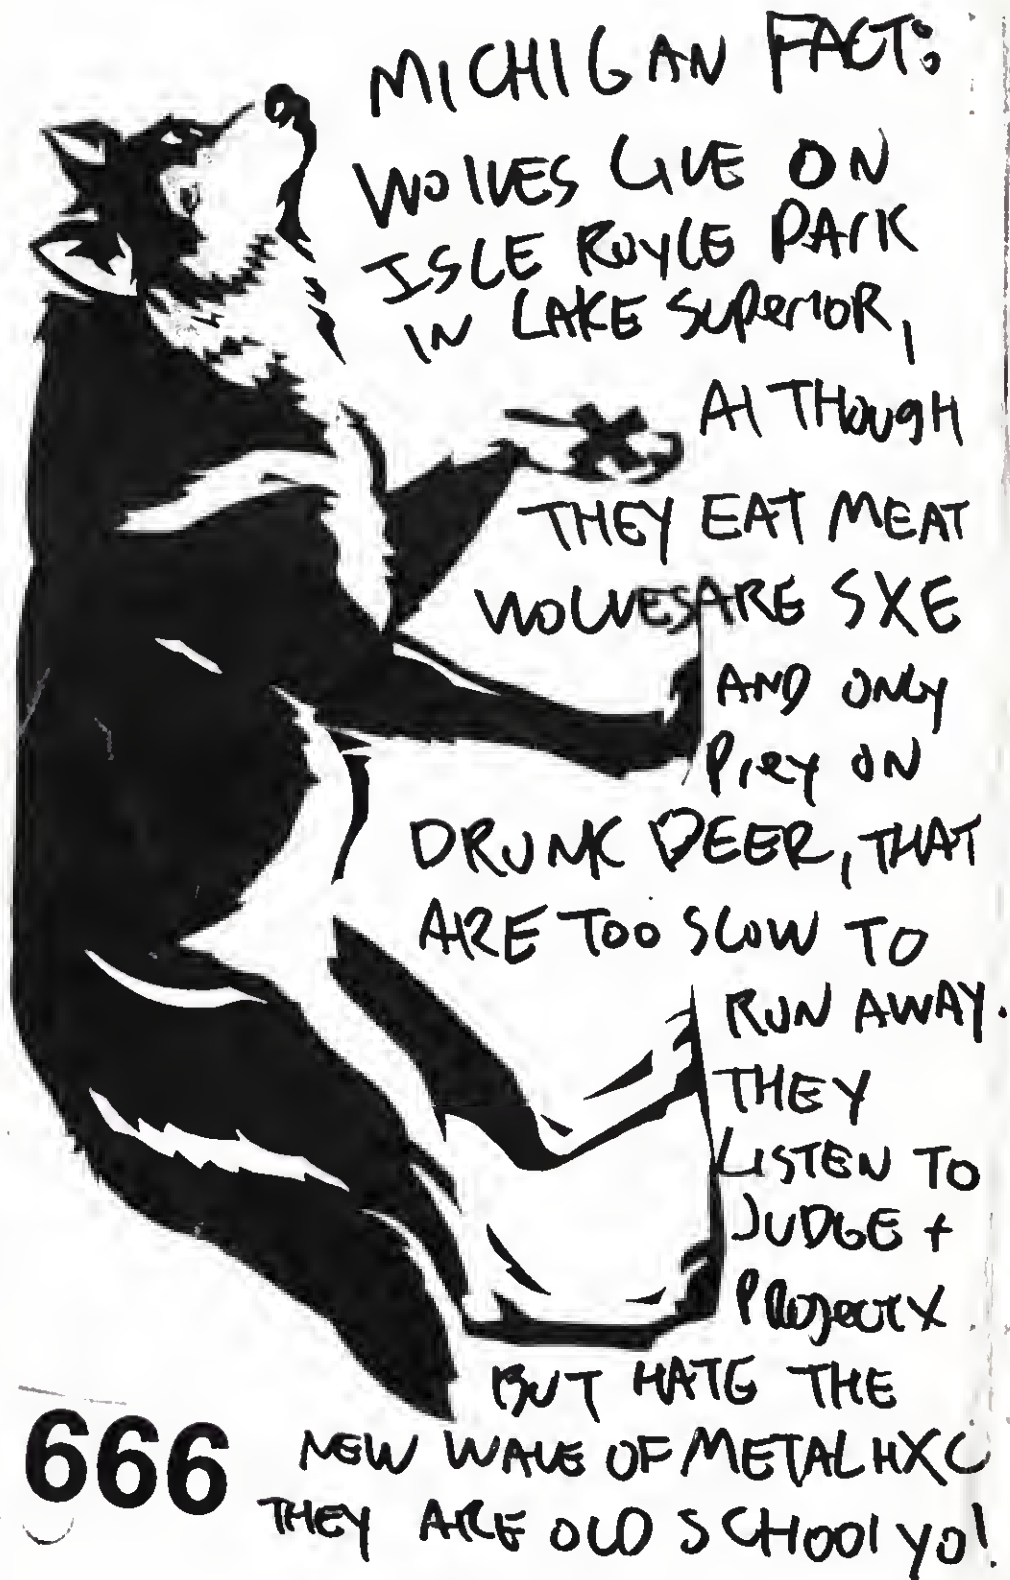 MICHIGAN FACT:
WOLVES LIVE ON
ISLE ROYLE PARK
IN LAKE SUPERIOR,
ALTHOUGH
THEY EAT MEAT
WOLVES ARE SXE
AND ONLY
PREY ON
DRUNK DEER, THAT
ARE TOO SLOW TO
RUN AWAY.
THEY
LISTEN TO
JUDGE +
PROJECT X
BUT HATE THE
NEW WAVE OF METAL HXC
THEY ARE OLD SCHOOL YO!
666